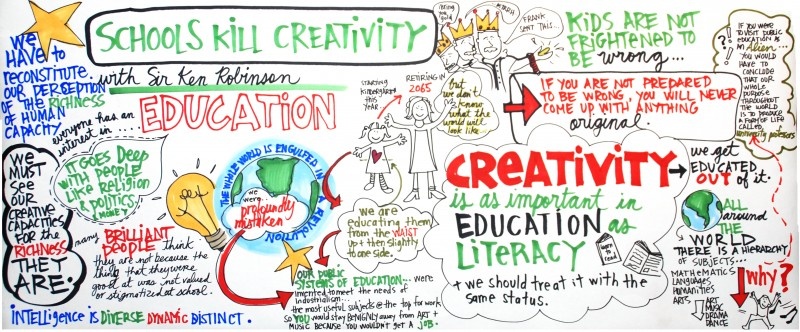 SCHOOLS KILL CREATIVITY
with Sir Ken Robinson
WE
HAVE to
reconstitute
OUR PERCEPTION
OF THE RICHNESS
OF HUMAN
CAPACITY.
everyone has an
interest in....
EDUCATION
IT GOES DEEP
WITH PEOPLE
LIKE RELIGION
& POLITICS,
& MONEY
WE
MUST
SEE
OUR
CREATIVE
CAPACITIES
FOR the
RICHNESS
THEY
ARE.
many BRILLIANT
PEOPLE think
they are not because the
thing that they were
good at was not valued
or stigmatized at school.
INTELLIGENCE is DIVERSE DYNAMIC DISTINCT.
THE WHOLE WORLD IS ENGULFED IN A REVOLUTION
we
were
profoundly
mistaken
STARTING
KINDERGARTEN
THIS YEAR
RETIRING IN
2065
but we
don't
know
what the
world will
look like
we are
educating them
from the WAIST
up + then slightly
to one side.
OUR PUBLIC
SYSTEMS OF EDUCATION... were
invented to meet the needs of
industrialism...
the most useful subjects @ the top for work
so YOU would stay BENIGNLY away from ART +
MUSIC BECAUSE YOU WOULDN'T GET A JOB.
I bring
you
gold
MYRRH
FRANK
SENT THIS...
KIDS ARE NOT
FRIGHTENED TO
BE wrong...
IF YOU ARE NOT PREPARED
TO BE WRONG, YOU WILL NEVER
COME UP WITH ANYTHING
original.
CREATIVITY
is as important in
EDUCATION as
LITERACY
+ we should treat it with
the same status.
learn
to
read
?!
IF YOU WERE
TO VISIT PUBLIC
EDUCATION AS
AN Alien...
YOU WOULD
HAVE TO
CONCLUDE
THAT OUR
WHOLE
PURPOSE
THROUGHOUT
THE WORLD
IS TO PRODUCE
A FORM OF LIFE
CALLED,
university professors
we get
EDUCATED
OUT of it.
ALL
around
the
WORLD
THERE IS A HIERARCHY
OF SUBJECTS...
MATHEMATICS
LANGUAGES
HUMANITIES
ARTS.
ART
MUSIC
DRAMA
DANCE
why?